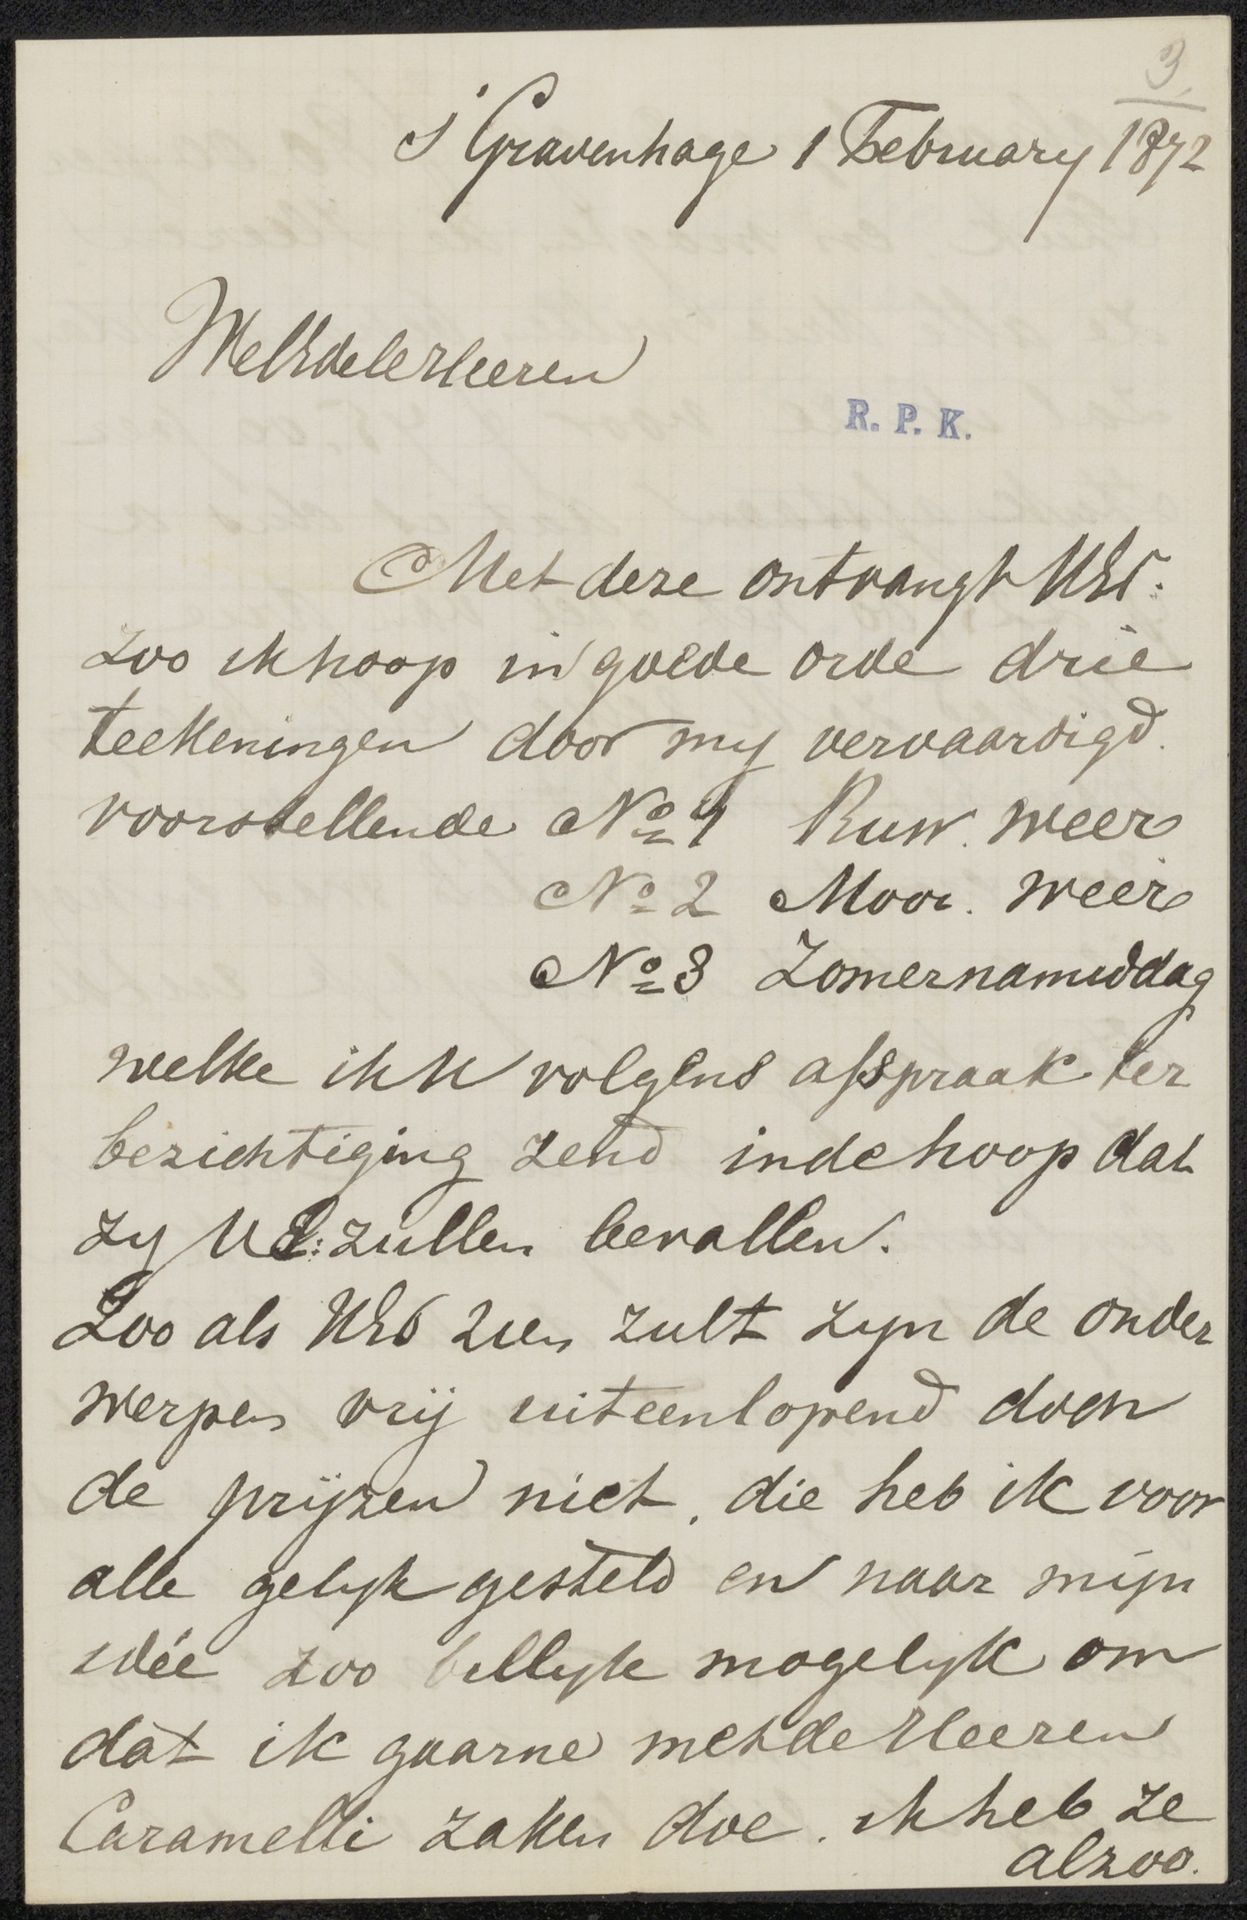 3
s' Gravenhage 1 February 1872
WelEdele Heeren
R. P. K.
Met deze ontvangt UEd:
zoo ik hoop in goede orde drie
teekeningen door my vervaardigd.
voorstellende No 1 Ruw. weer
No 2 Mooi. weer
No 3 Zomernamiddag
welke ik U volgens afspraak ter
bezichtiging zend in de hoop dat
zy UE: zullen bevallen.
Zoo als UEd zien zult zyn de onder
werpen vrij uiteenlopend doch
de prijzen niet, die heb ik voor
alle gelyk gesteld en naar mijn
idée zoo billyk mogelyk om
dat ik gaarne met de Heeren
Caramelli zaken doe. ik heb ze
alzoo.